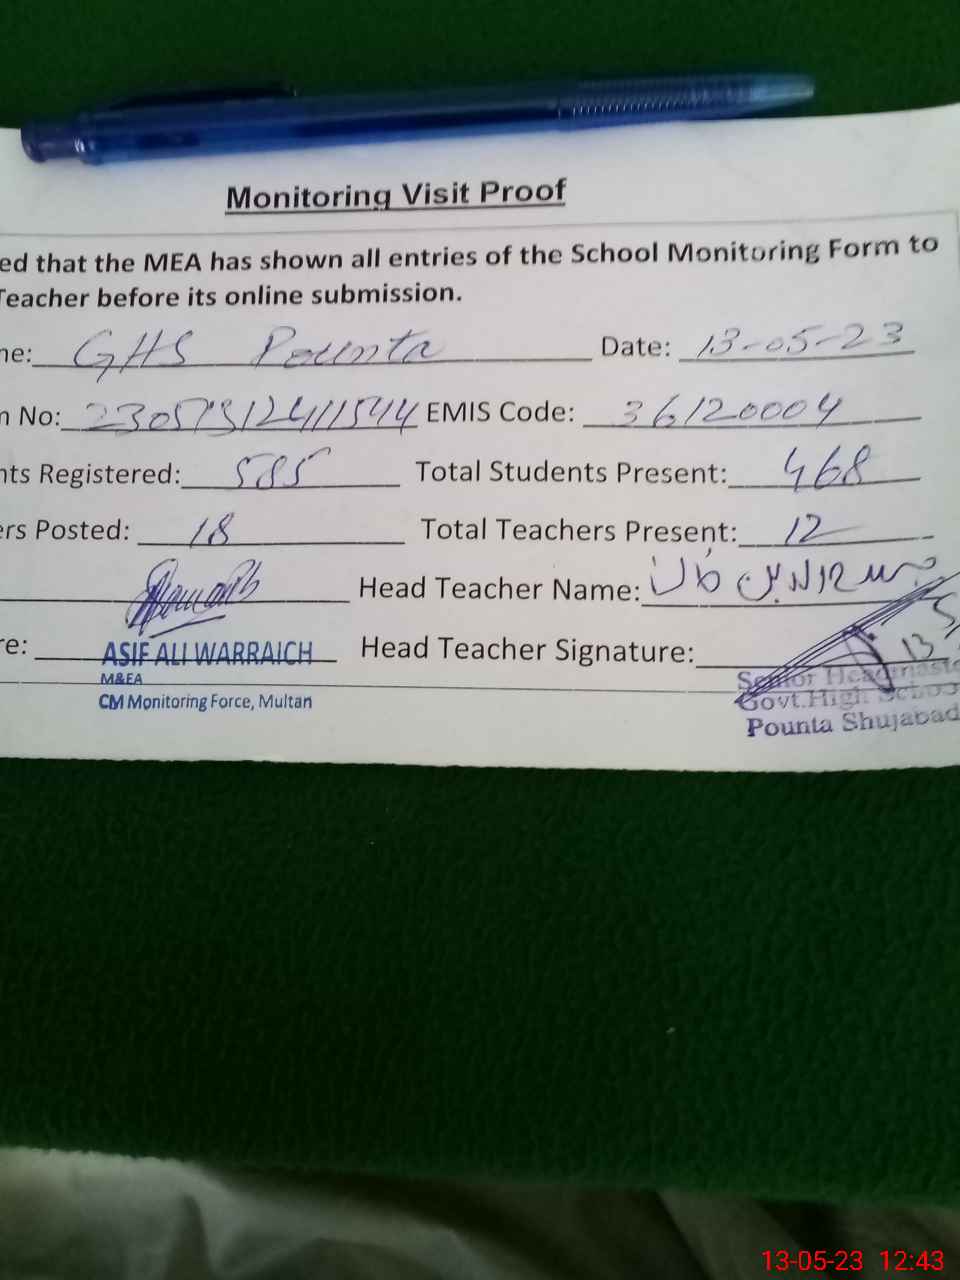 Monitoring Visit Proof
ed that the MEA has shown all entries of the School Monitoring Form to
Teacher before its online submission.
ne: GHS Pounta Date: 13-05-23
n No: EMIS Code: 36120004
nts Registered: 585 Total Students Present: 468
ers Posted: 18 Total Teachers Present: 12
Head Teacher Name:
re: ASIF ALI WARRAICH Head Teacher Signature:
M&EA
CM Monitoring Force, Multan
Senior Headmaste
Govt.High School
Pounta Shujabad
13-05-23 12:43